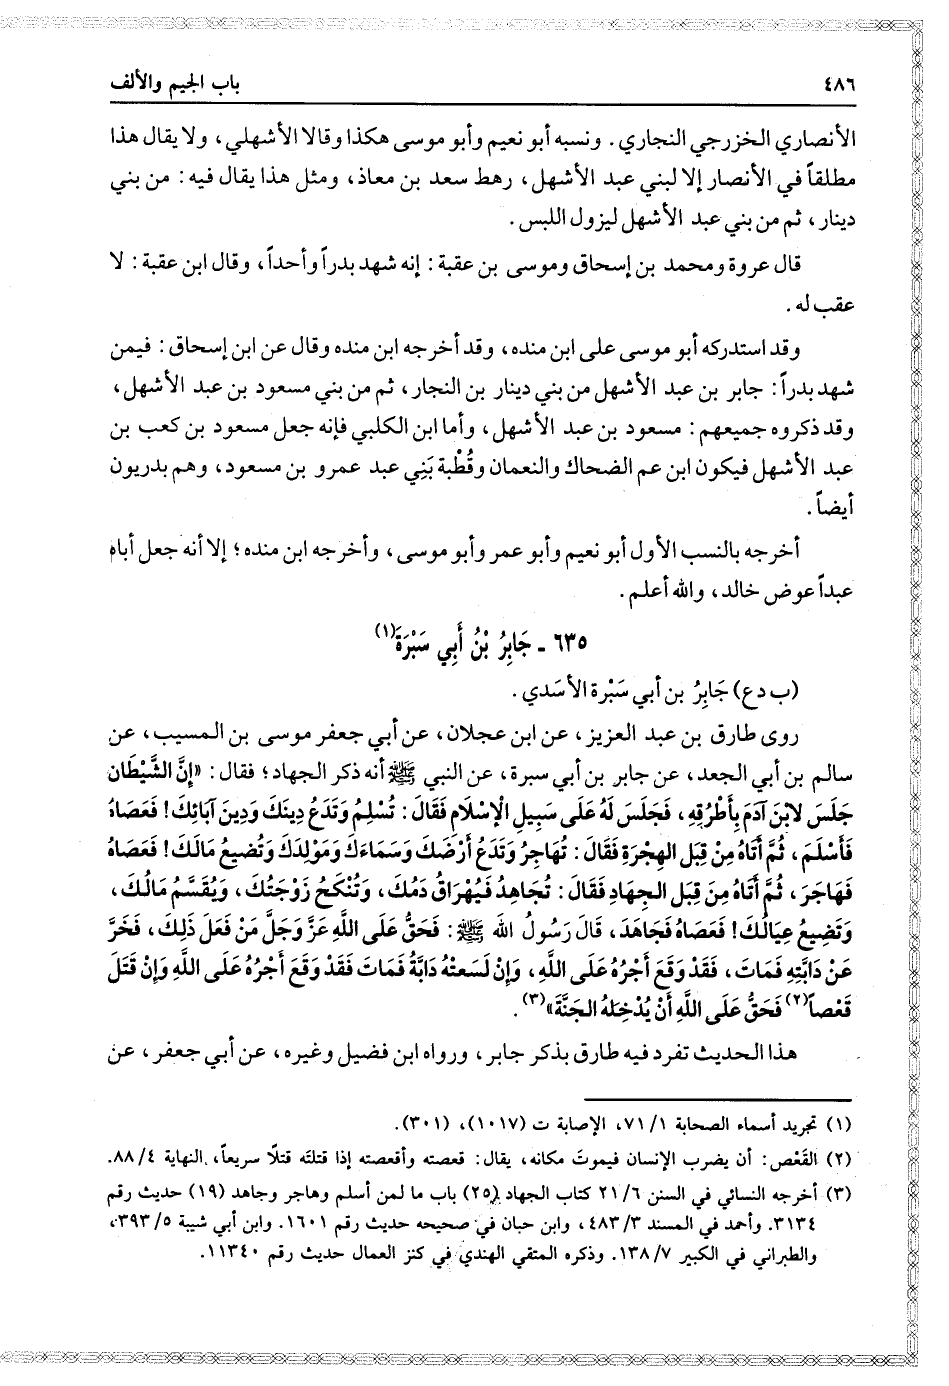 ٤٨٦
باب الجيم والألف
الأنصاري الخزرجي النجاري. ونسبه أبو نعيم وأبو موسى هكذا وقالا الأشهلي، ولا يقال هذا
مطلقاً في الأنصار إلا لبني عبد الأشهل، رهط سعد بن معاذ، ومثل هذا يقال فيه: من بني
دينار، ثم من بني عبد الأشهل ليزول اللبس.
قال عروة ومحمد بن إسحاق وموسى بن عقبة: إنه شهد بدراً وأحداً، وقال ابن عقبة: لا
عقب له.
وقد استدركه أبو موسى على ابن منده، وقد أخرجه ابن منده وقال عن ابن إسحاق: فيمن
شهد بدراً: جابر بن عبد الأشهل من بني دينار بن النجار، ثم من بني مسعود بن عبد الأشهل،
وقد ذكروه جميعهم: مسعود بن عبد الأشهل، وأما ابن الكلبي فإنه جعل مسعود بن كعب بن
عبد الأشهل فيكون ابن عم الضحاك والنعمان وقُطْبة بَنِي عبد عمرو بن مسعود، وهم بدريون
أيضاً.
أخرجه بالنسب الأول أبو نعيم وأبو عمر وأبو موسى، وأخرجه ابن منده؛ إلا أنه جعل أباه
عبداً عوض خالد، والله أعلم.
٦٣٥ ـ جَابِرُ بْنُ أَبِي سَبْرَةَ(١)
(ب دع) جَابِرُ بن أبي سَبْرة الأسَدي.
روى طارق بن عبد العزيز، عن ابن عجلان، عن أبي جعفر موسى بن المسيب، عن
سالم بن أبي الجعد، عن جابر بن أبي سبرة، عن النبي ﷺ أنه ذكر الجهاد؛ فقال: «إِنَّ الشَّيْطَانَ
جَلَسَ لابْنِ آدَمَ بِأَطْرُقِهِ، فَجَلَسَ لَهُ عَلَى سَبِيلِ الْإِسْلَامِ فَقَالَ: تُسْلِمُ وَتَدَعُ دِينَكَ وَدِينَ آبَائِكَ! فَعَصَاهُ
فَأَسْلَمَ، ثُمَّ أَتَاهُ مِنْ قِبَلِ الهِجْرَةِ فَقَالَ: تُهَاجِرُ وَتَدَعُ أَرْضَكَ وَسَمَاءَكَ وَمَوْلِدَكَ وَتُضيعُ مَالَكَ! فَعَصَاهُ
فَهَاجَرَ، ثُمَّ أَتَاهُ مِنَ قِبَلِ الجِهَادِ فَقَالَ: تُجَاهِدُ فَيُهْرَاقُ دَمُكَ، وَتُنْكَحُ زَوْجَتُكَ، وَيُقَسَّمُ مَالُكَ،
وَتَضِيعُ عِيَالُكَ! فَعَصَاهُ فَجَاهَدَ، قَالَ رَسُولُ الله ﷺ: فَحَقٌّ عَلَى اللَّهِ عَزَّ وَجَلَّ مَنْ فَعَلَ ذَلِكَ، فَخَرَّ
عَنْ دَابَّتِهِ فَمَاتَ، فَقَدْ وَقَعَ أَجْرُهُ عَلَى اللَّهِ، وَإِنْ لَسَعَتْهُ دَابَّةُ فَمَاتَ فَقَدْ وَقَعَ أَجْرُهُ عَلَى اللَّهِ وَإِنْ قُتَلَ
قَعْصاً(٢) فَحَقٌّ عَلَى اللَّهِ أَنْ يُدْخِلَهُ الجَنَّةَ»(٣).
هذا الحديث تفرد فيه طارق بذكر جابر، ورواه ابن فضيل وغيره، عن أبي جعفر، عن
(١) تجريد أسماء الصحابة ٧١/١، الإصابة ت (١٠١٧)، (٣٠١).
(٢) القَعْص: أن يضرب الإنسان فيموتَ مكانه، يقال: قعصته وأقعصته إذا قتلتَه قتلًا سريعاً، النهاية ٨٨/٤.
(٣) أخرجه النسائي في السنن ٢١/٦ كتاب الجهاد (٢٥) باب ما لمن أسلم وهاجر وجاهد (١٩) حديث رقم
٣١٣٤. وأحمد في المسند ٤٨٣/٣، وابن حبان في صحيحه حديث رقم ١٦٠١. وابن أبي شيبة ٣٩٣/٥،
والطبراني في الكبير ١٣٨/٧. وذكره المتقي الهندي في كنز العمال حديث رقم ١١٣٤٠.